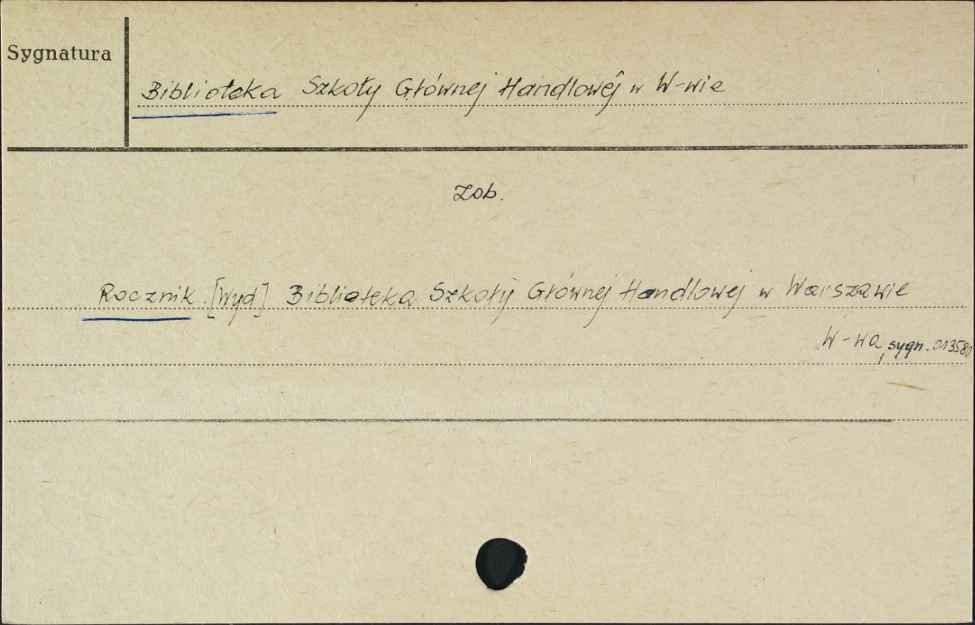 Sygnatura
Biblioteka Szkoły Głównej Handlowej w W-wie
Zob.
Rocznik [Wyd] Biblioteka Szkoły Głównej Handlowej w Warszawie
W-wa, sygn. 013581